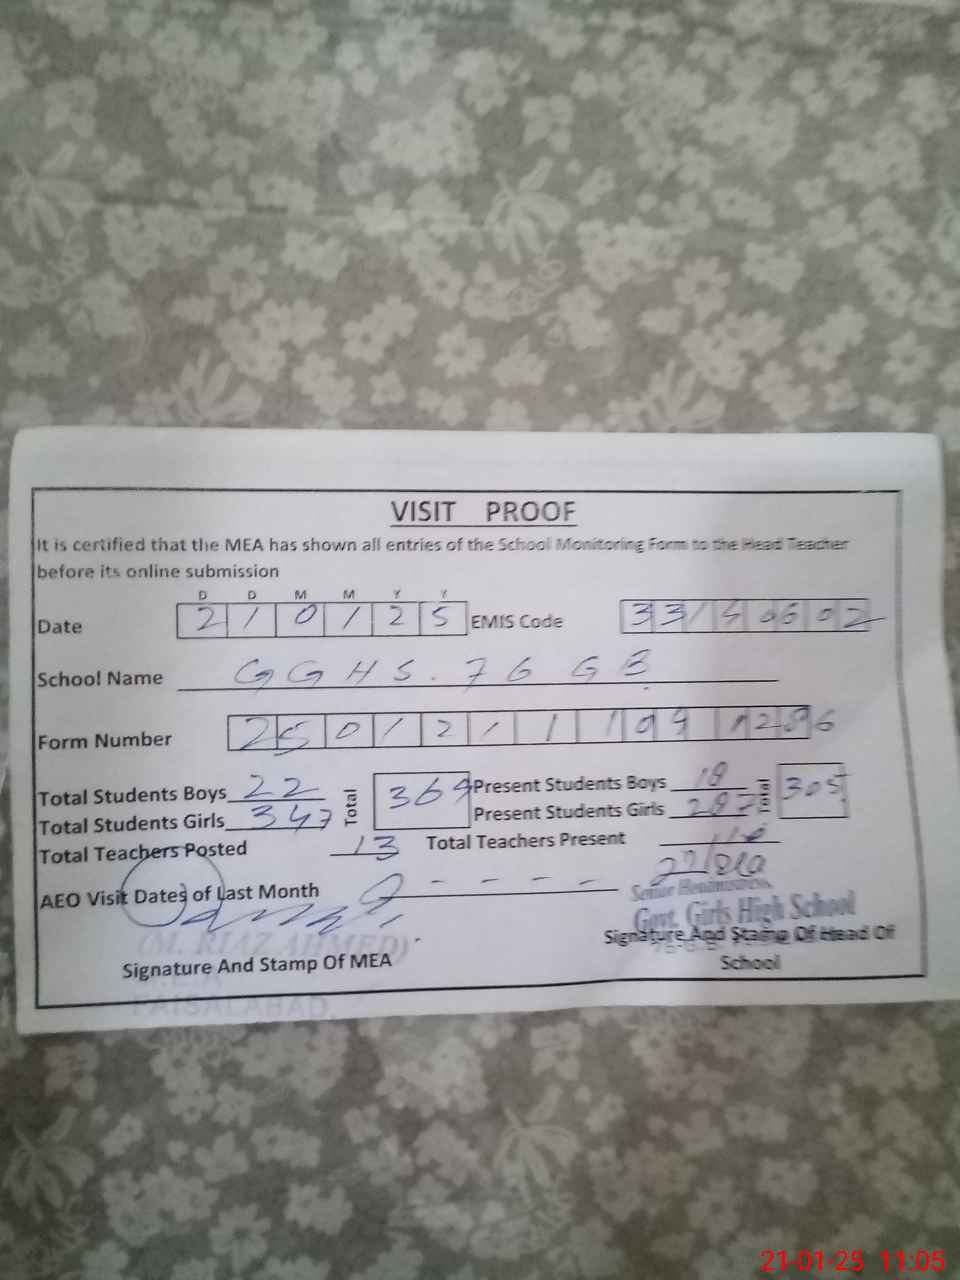 VISIT PROOF
It is certified that the MEA has shown all entries of the School Monitoring Form to the Head Teacher
before its online submission
D D M M Y Y
Date 210125 EMIS Code
School Name GGHS. 76 GB
Form Number
Total Students Boys 22 Total 369 Present Students Boys 18 Total 305
Total Students Girls 347 Present Students Girls 287
Total Teachers Posted 13 Total Teachers Present
AEO Visit Dates of Last Month
Senior Headmistress,
Govt. Girls High School
Signature And Stamp Of Head Of
School
(M. RIAZ AHMED)
Signature And Stamp Of MEA
FAISALABAD.
21-01-25 11:05